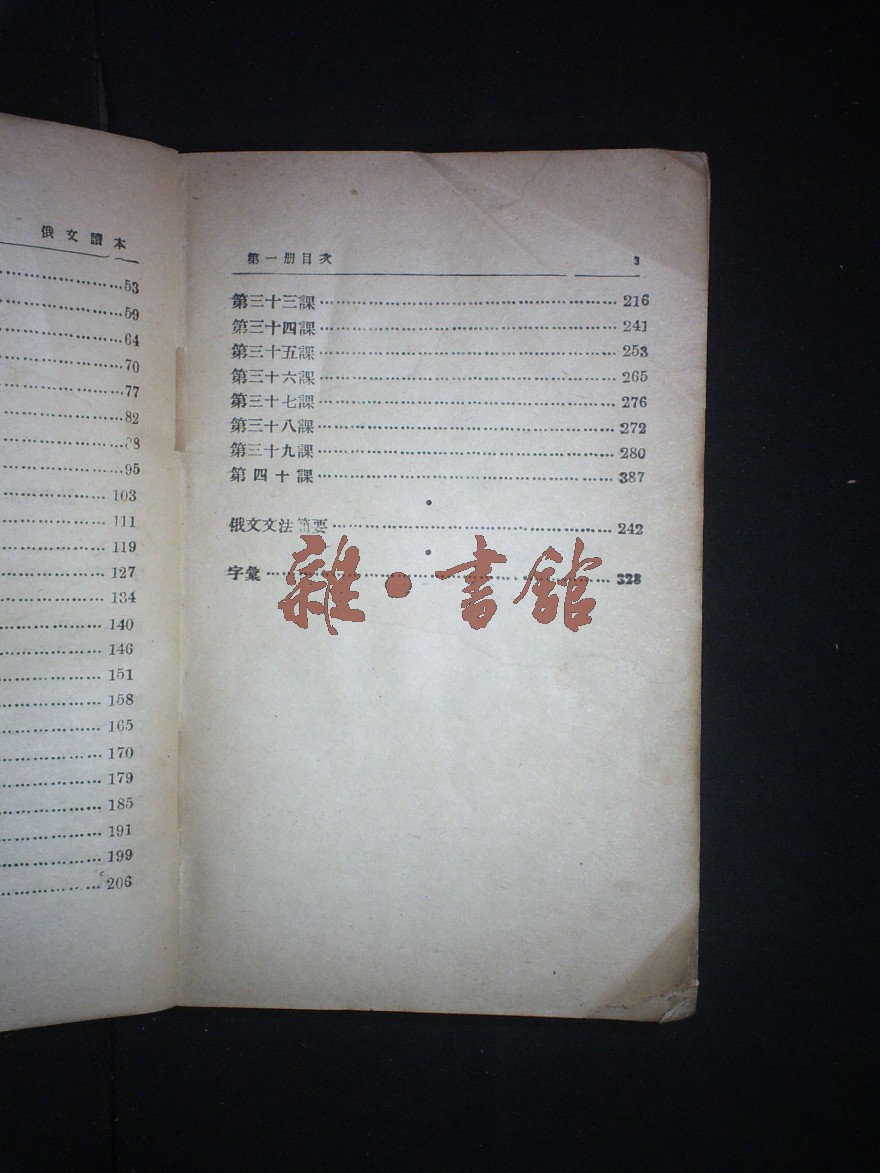 俄文讀本
53
59
64
70
77
82
95
103
111
119
127
134
140
146
151
158
165
170
179
185
191
199
206
第一册目次 3
第三十三課 216
第三十四課 241
第三十五課 253
第三十六課 265
第三十七課 276
第三十八課 272
第三十九課 280
第四十課 387
俄文文法簡要 242
字彙 328
雜·書館